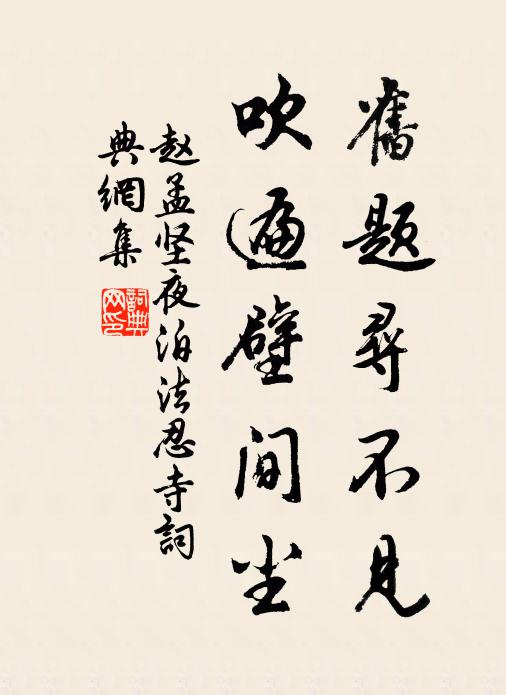 舊题尋不見
吹遍壁间尘
赵孟坚夜泊法忍寺詞
典網集
詞典
网印